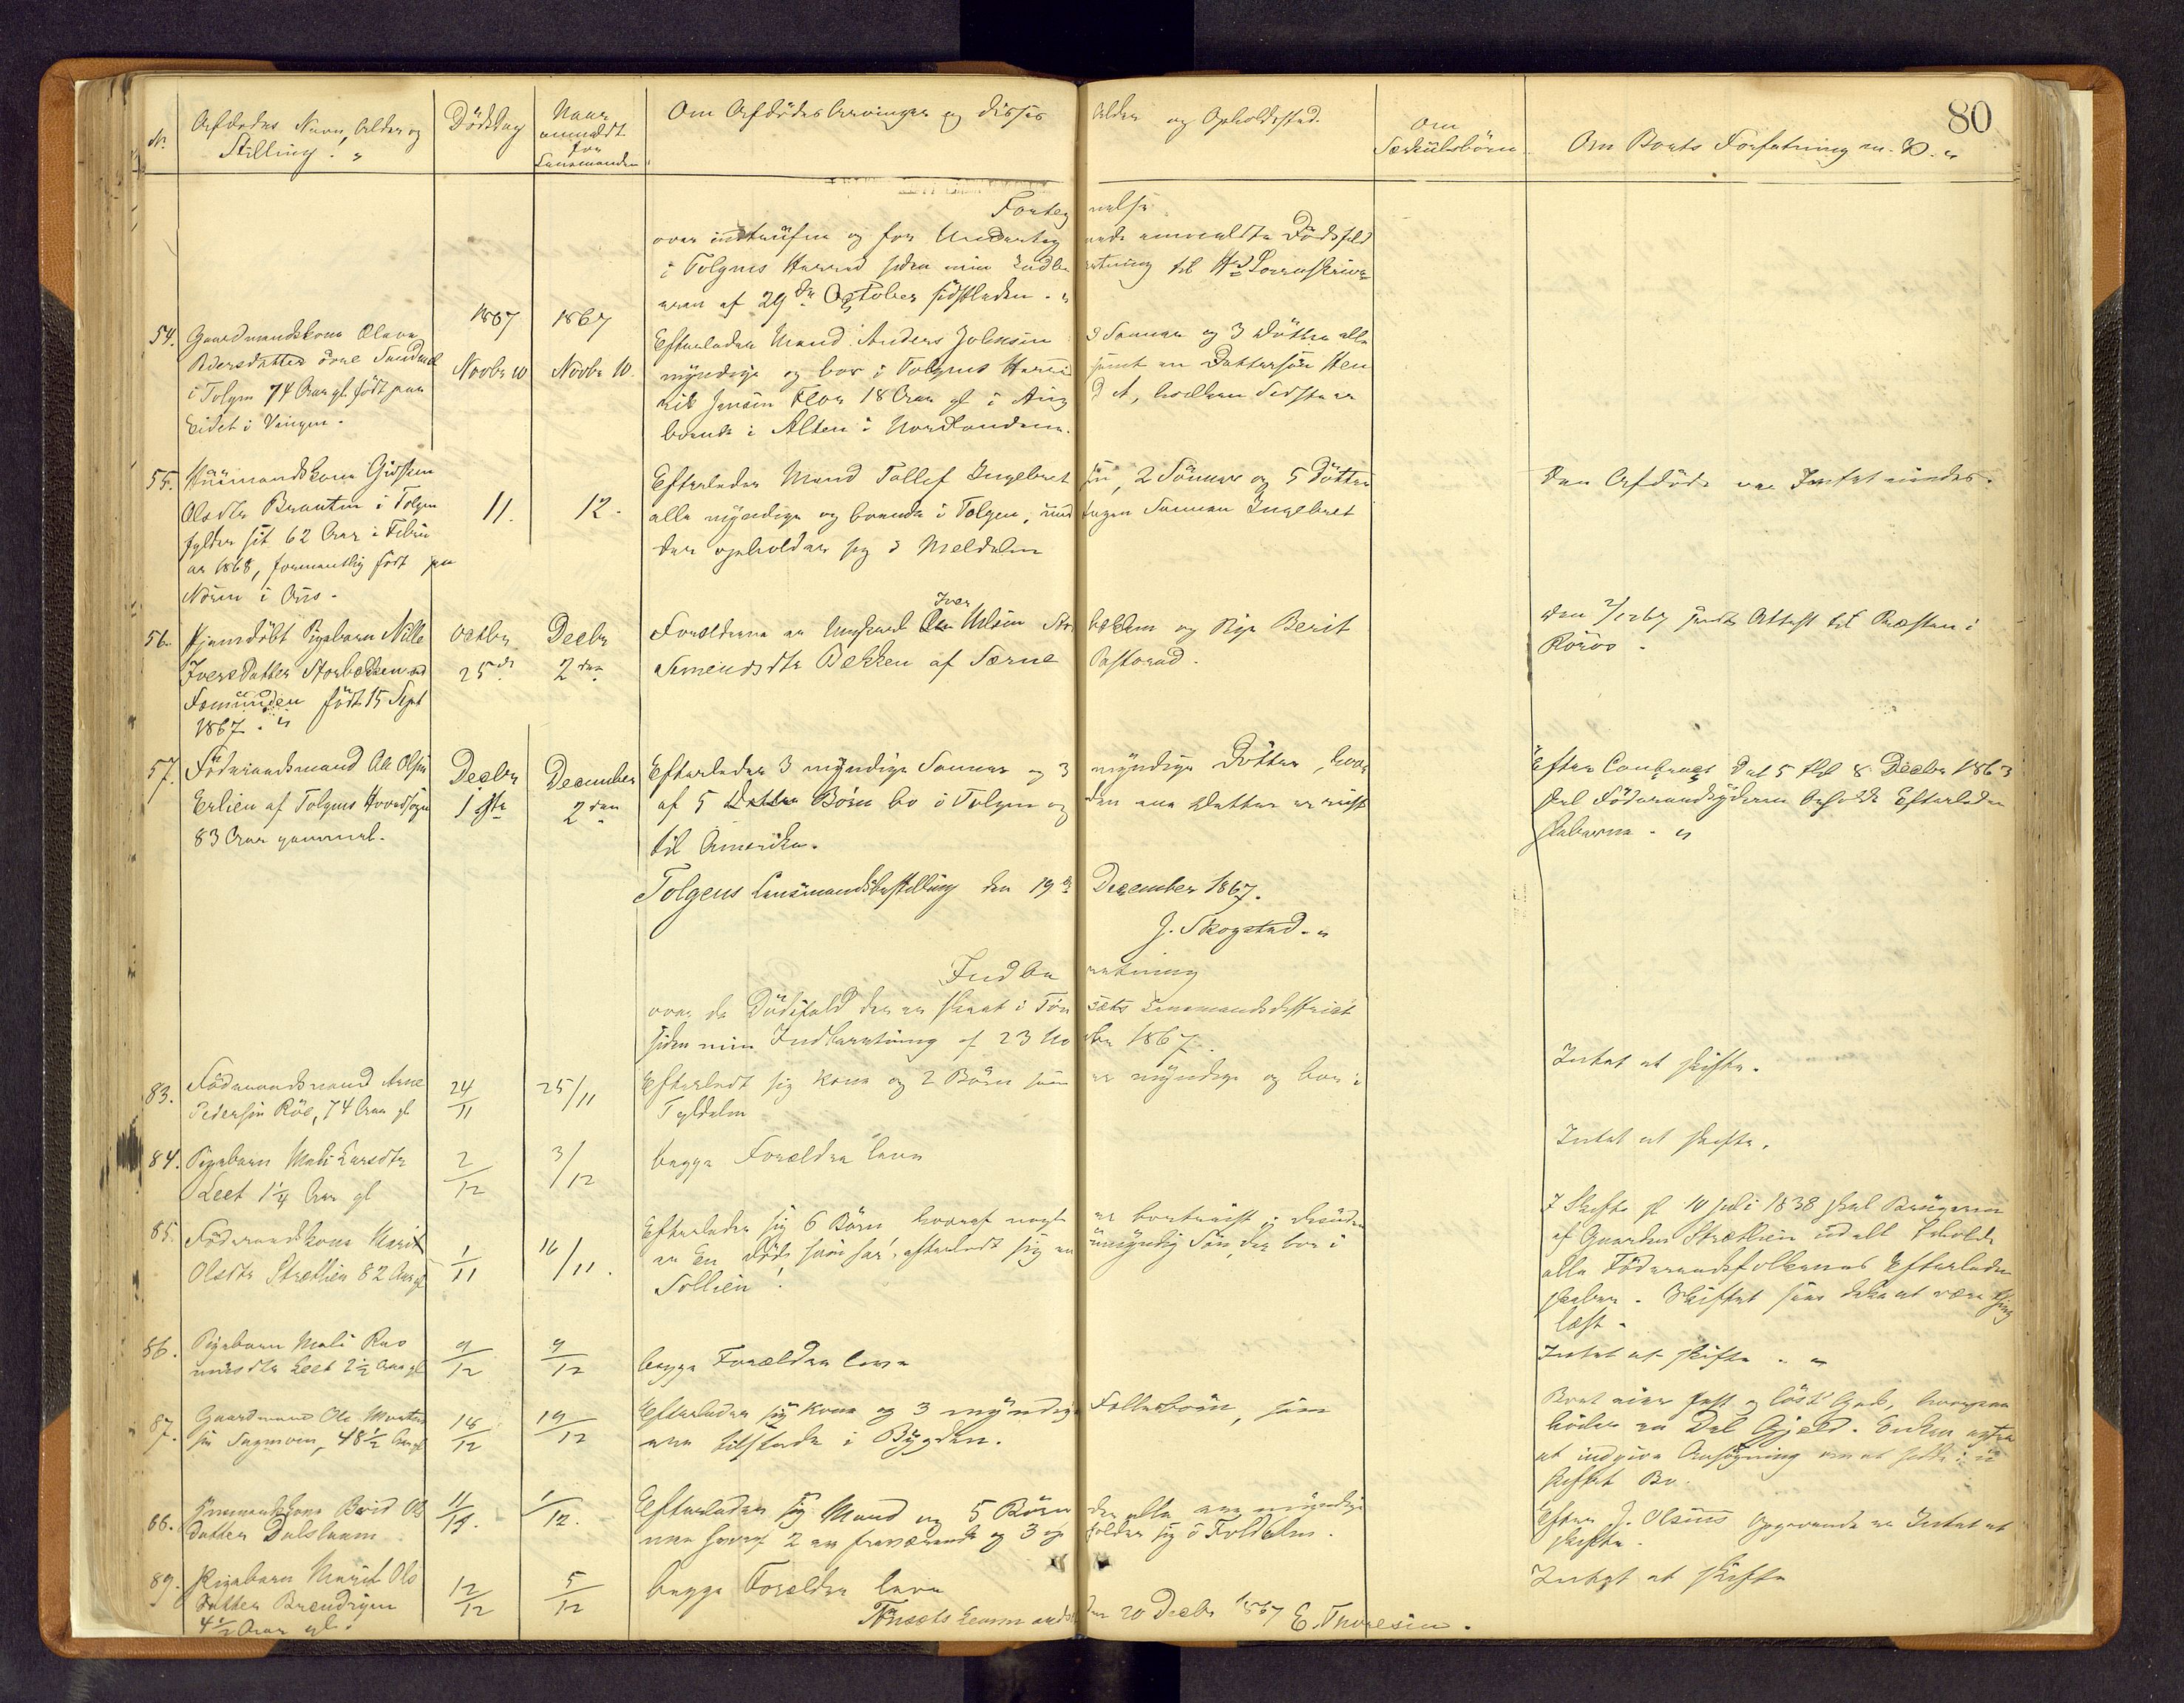 80
Nr.
Afdødes Navn, Alder og
Stilling. "
Dödsdag
Naar
anmeldt
for
Lensmanden
Om Afdødes Arvinger og disses Alder og Opholdssted.
Om
Særkulsbörn.
Om Boets Forfatning m. V. "
Forteg nelse
over indtrufne og for Underteg nede anmeldte Dödsfald
i Tolgens Herred siden min Indbe retning til Hr Sorenskrive
eren af 29de October sidstleden. "
54. Gaardmandskone Olava
Pedersdatter övre Sundmoe
i Tolgen 74 Aar gl. födt paa
Eidet i Vingen.
1867
Novbr 10
1867
Novbr 10.
Efterlader Mand: Anders Johnsen 3 Sønner og 3 Döttre alle
myndige og bor i Tolgens Herred samt en Dattersøn Hen
rik Jensen Floor 18 Aar gl. i Aug d A, hvilken Sidste er
boende i Alten i Nordlandene.
55. Huusmandskone Gjertrud
Olsdtr Brænden i Tolgen
fylder sit 62 Aar i Febru
ar 1868, formentlig födt paa
Nören i Os.
11.
12.
Efterlader Mand Tollef Ingebret sen, 2 Sönner og 5 Döttre
alle myndige og boende i Tolgen, und tagen Sønnen Ingebret
der opholder sig i Meldalen
Den Afdöde var Intet eiendes.
56. Hjemdöbt Pigebarn Nille
Iversdatter Storbækken ved
Fæmunden födt 15 Sept
1867. "
Octbr
25de
Decbr
2den
Forældrene er Ungkarl Iver Nilsen Stor bækken og Pige Berit
Simensdtr Bekken af Særna Pastorad.
Den 2/12 67 sendt Attest til Præsten i
Röros.
57. Föderaadsmand Ole Olsen
Erlien af Tolgens Hovedsogn
83 Aar gammel.
Decbr
1ste
December
2den
Efterlader 3 myndige Sønner og 3 myndige Döttre, hvor
af 5 Börn bo i Tolgen og den ene Datter er reist
til Amerika.
Efter Contract dat 5 thl 8 Decbr 1863
skal Föderaadsyderen beholde Efterladen
skaberne. "
Tolgens Lensmandsbestilling den 19de December 1867.
J. Skogstad. "
Indbe retning
over de Dödsfald der er skeet i Tön sets Lensmandsdistrict
siden min Indberetning af 23 No vbr 1867.
83. Föderaadsmand Arne
Pedersen Röe, 74 Aar gl
24/11
25/11
Efterladt sig Kone og 2 Börn som er myndige og bor i
Tyldalen
Intet at skifte.
84. Pigebarn Mali Larsdtr
Leet 1¼ Aar gl
2/12
3/12
begge Forældre leve
Intet at skifte.
85. Föderaadskone Marit
Olsdtr Strætlien 82 Aar gl
1/11
16/11.
Efterlader sig 6 Börn hvoraf nogle er bortreist; desuden
er En död, som har efterladt sig en umyndig Sön, der bor i
Tollien.
I Skifte af 10 Juli 1838 skal Brugeren
af Gaarden Strætlien udelt beholde
alle Föderaadsfolkenes Efterladen
skaber. Skiftet siges ikke at være thing
læst.
86. Pigebarn Mali Ras
musdtr Leet 2½ Aar gl
9/12
9/12
begge Forældre leve
Intet at skifte. "
87. Gaardmand Ole Morten
sen Tegmoen, 48½ Aar gl
18/12
19/12
Efterlader sig Kone og 3 myndige Fellesbörn, som
ere tilstede i Bygden.
Boet eier fast og löst Gods, hvorpaa
hviler en Del Gjeld. Enken agter
at indgive Ansögning om at sidde i u
skiftet Bo.
88. Huusmandskone Berit Ols
datter Dalshaam
11/12.
Efterlader sig Mand og 5 Börn der alle ere myndige
men hvoraf 2 ere fraværende og 3 op holder sig i Foldalen.
Efter J. Olsens Opgivende er Intet at
skifte.
89. Pigebarn Marit Ols
datter Brendryen
4½ Aar gl.
12/12
5/12
begge Forældre leve
Intet at skifte
Tönsets Lensmands den 20 Decbr 1867 E. Thoresen.